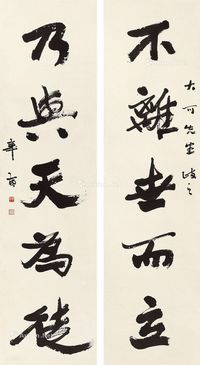 大可先生政之
不離世而立
乃與天為徒